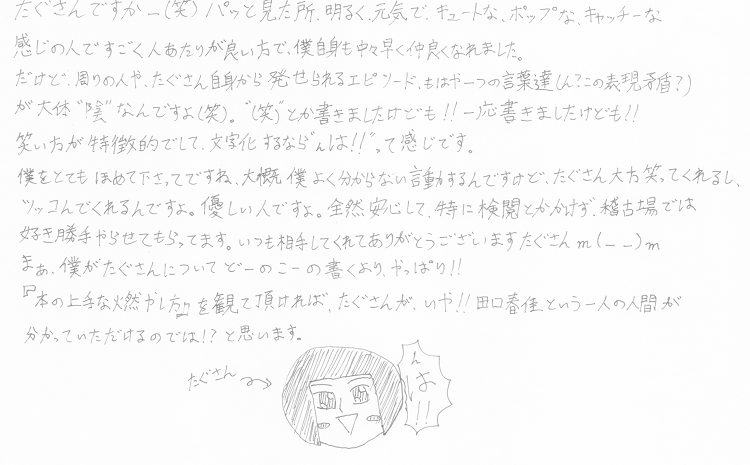 たぐさんですかー(笑) パッと見た所、明るく、元気で、キュートな、ポップな、キャッチーな
感じの人ですごく人あたりが良い方で、僕自身も中々早く仲良くなれました。
だけど、周りの人や、たぐさん自身から発せられるエピソード、もはや一つの言葉達(ん?この表現矛盾?)
が大体"陰"なんですよ(笑)。"(笑)"とか書きましたけども!!一応書きましたけども!!
笑い方が特徴的でして、文字化するなら"んは!!"って感じです。
僕をとてもほめて下さってですね、大概僕よく分からない言動するんですけど、たぐさん大方笑ってくれるし、
ツッコんでくれるんですよ。優しい人ですよ。全然安心して、特に検閲とかかけず、稽古場では
好き勝手やらせてもらってます。いつも相手してくれてありがとうございますたぐさんm(_ _)m
まぁ、僕がたぐさんについてどーのこーの書くより、やっぱり!!
『本の上手な燃やし方』を観て頂ければ、たぐさんが、いや!!田口春佳という一人の人間が
分かっていただけるのでは!?と思います。
たぐさん
んは!!